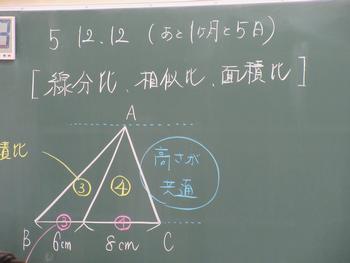 5 12.12 (あと1ヶ月と5日)
[線分比、相似比、面積比]
A
積比
高さが
共通
③ ④
③ ④
B 6cm 8cm C